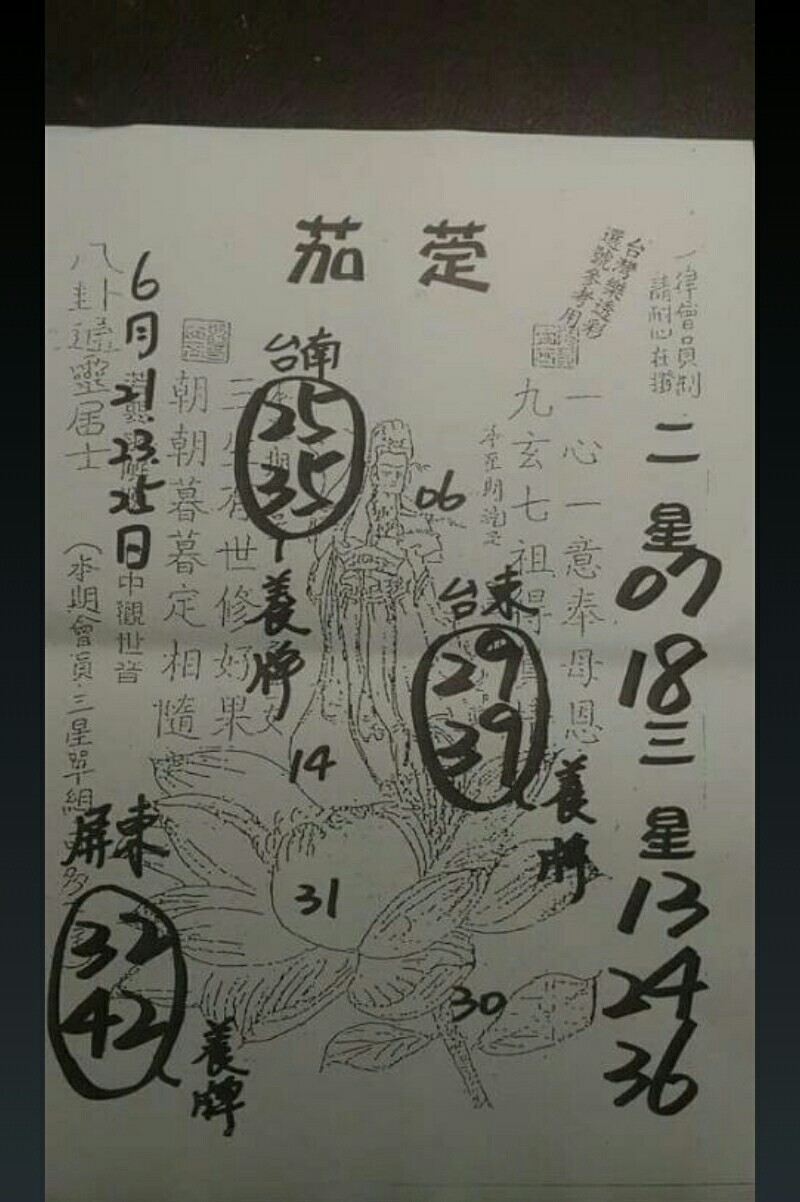 茄萣
一律會員制
請耐心在攤
台灣樂透彩
選號參考用
二星
07
18
三星
13
24
36
一心一意奉母恩
九玄七祖得
06
台東
29
39
養牌
台南
25
35
養牌
世修好果
朝朝暮暮定相隨
14
31
30
6月21.23.25日
中觀世音
八卦
靈居士
(本期會員三星單組
屏東
32
42
養牌